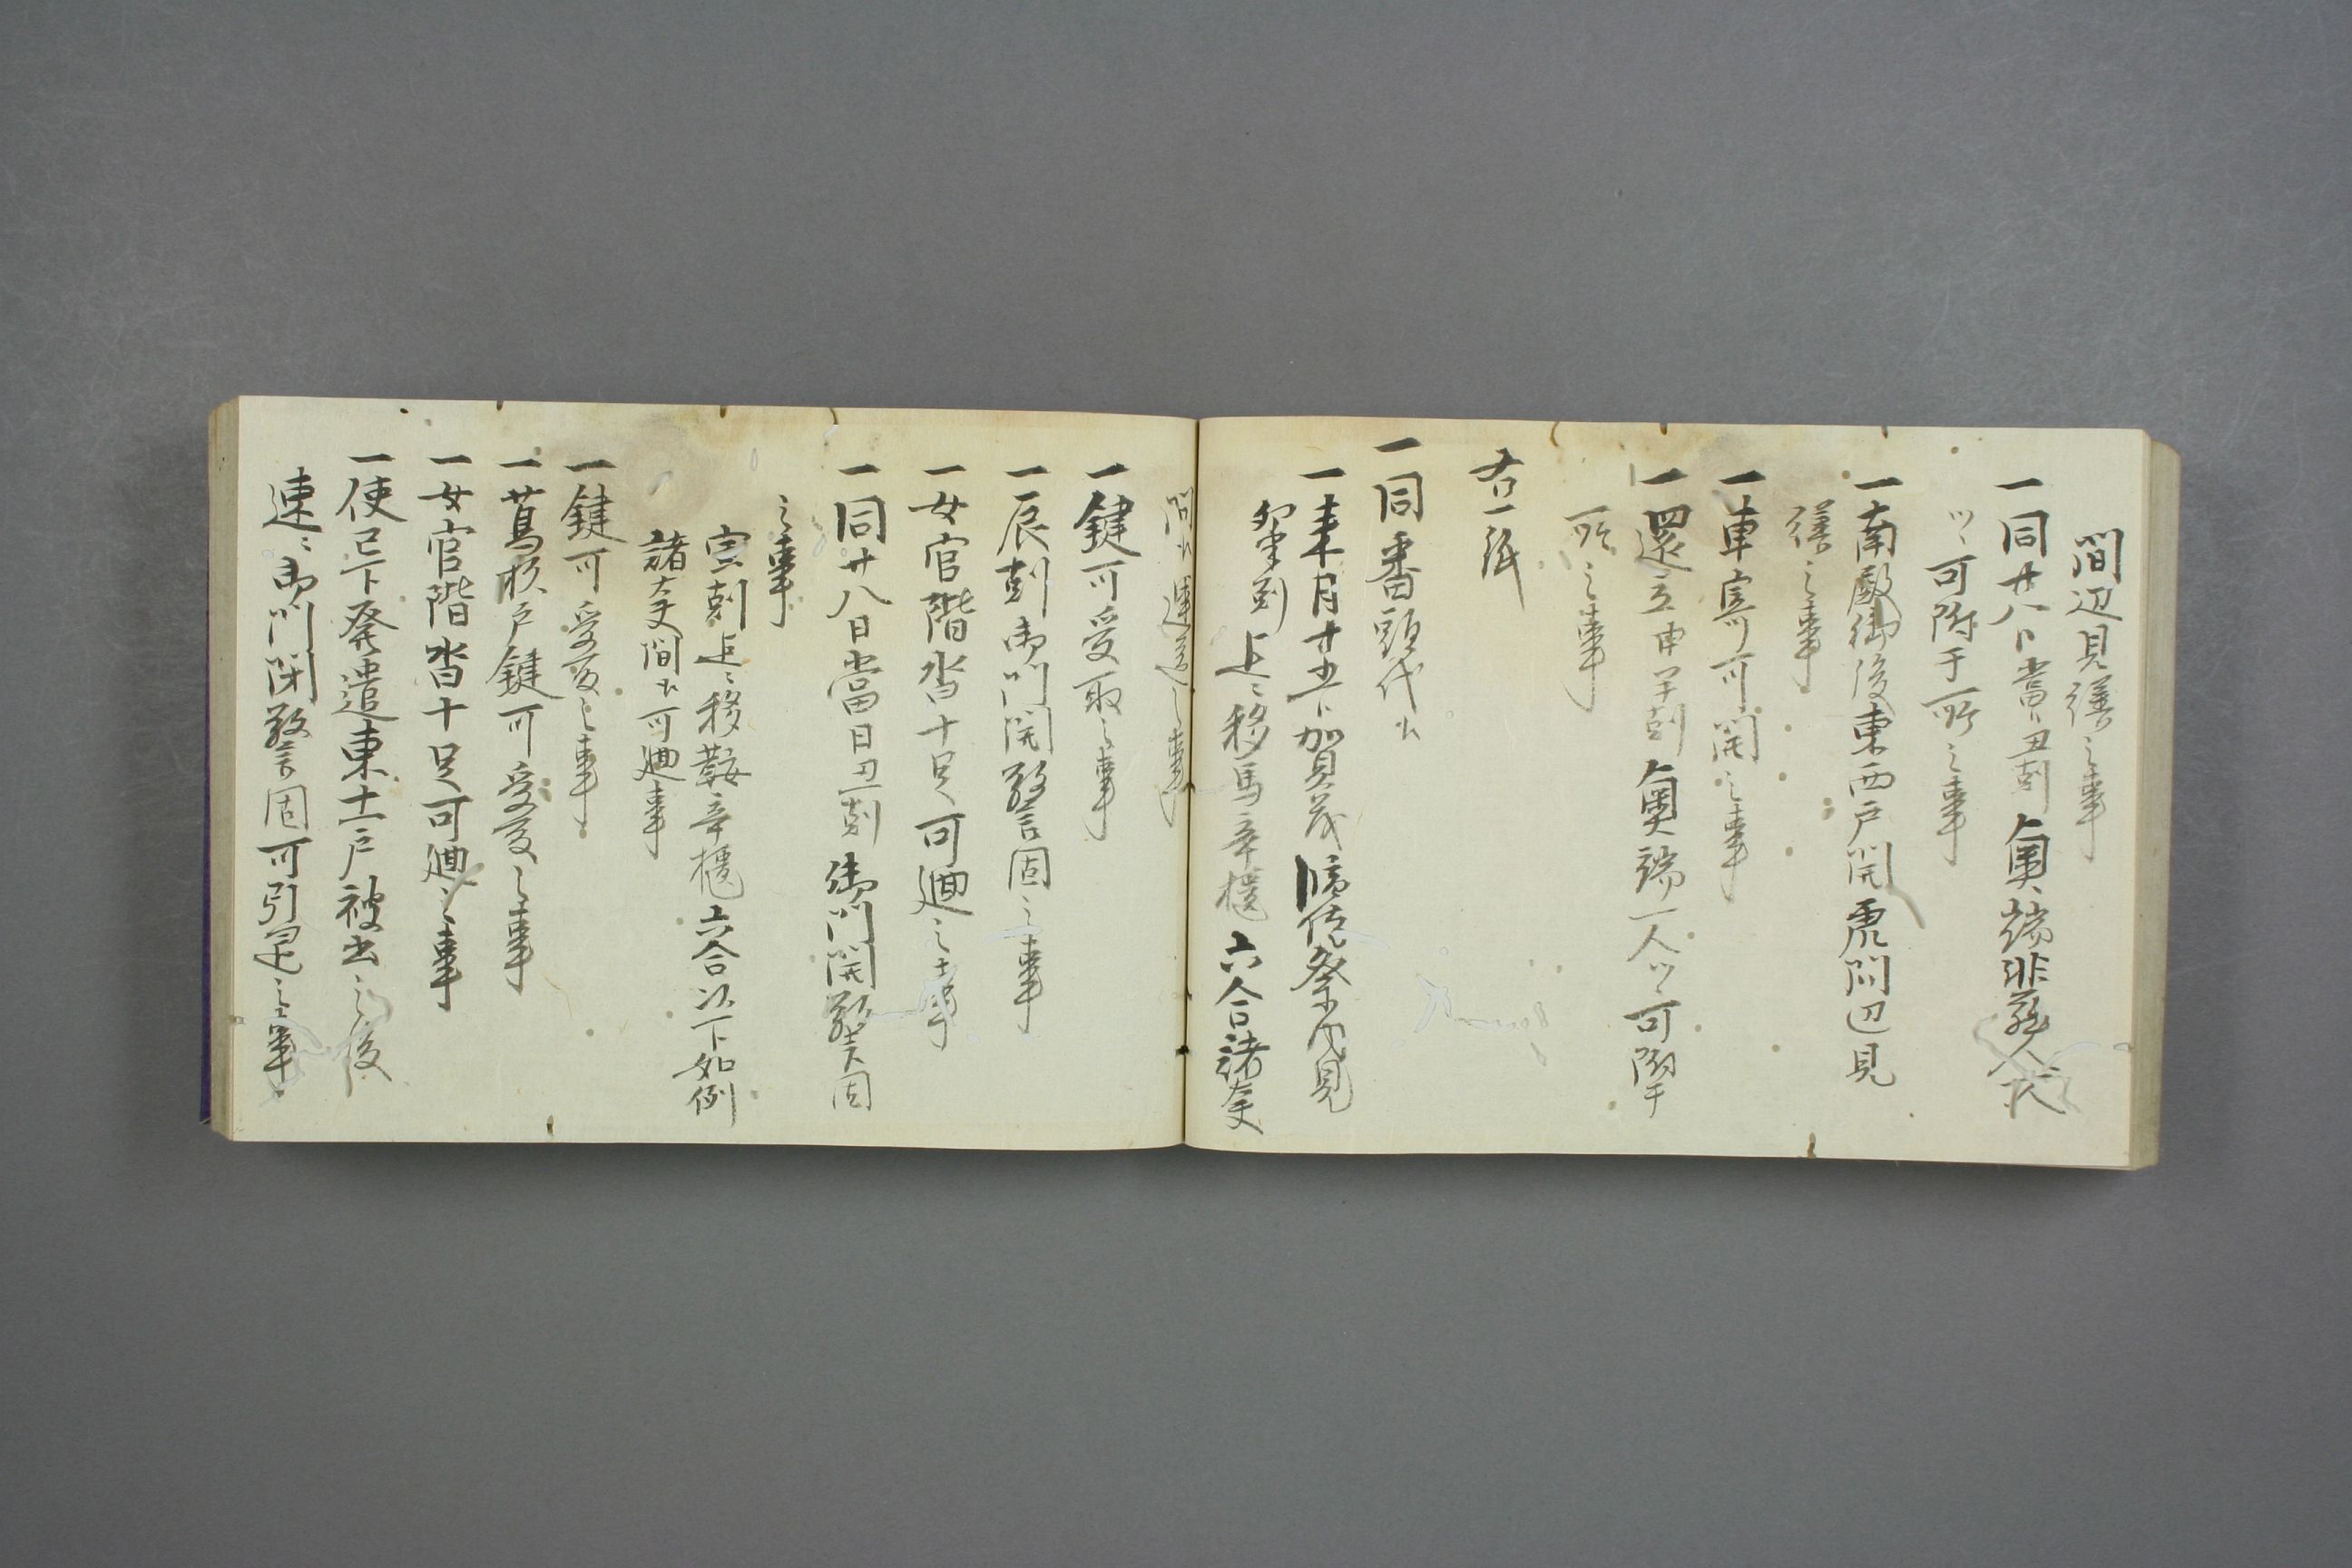 間辺見繕之事
一同廿八日當日丑刻奥端非蔵人代
ツヽ可附于所之事
一南殿御後東西戸開虎間辺見
繕之事
一車寄可開之事
一還立申半刻奥端一人ツヽ可附于
所之事
右一紙
一同番頭代ホ
一来月廿五日加賀茂臨任祭内見
卯半刻 上ヽ移馬辛櫃六合諸大夫
間ホ運送之事
一鍵可受取之事
一辰刻御門開警固之事
一女官階沓十足可廻之事
一同廿八日當日丑刻御門開警固
之事
寅刻上ヽ移鞍辛櫃六合以下如例
諸大夫間ホ可廻事
一鍵可受取之事
一蔦杉戸鍵可受取之事
一女官階沓十足可廻之事
一使已下発遣東土戸被出之後
速ヽ御門閉警固可引退之事